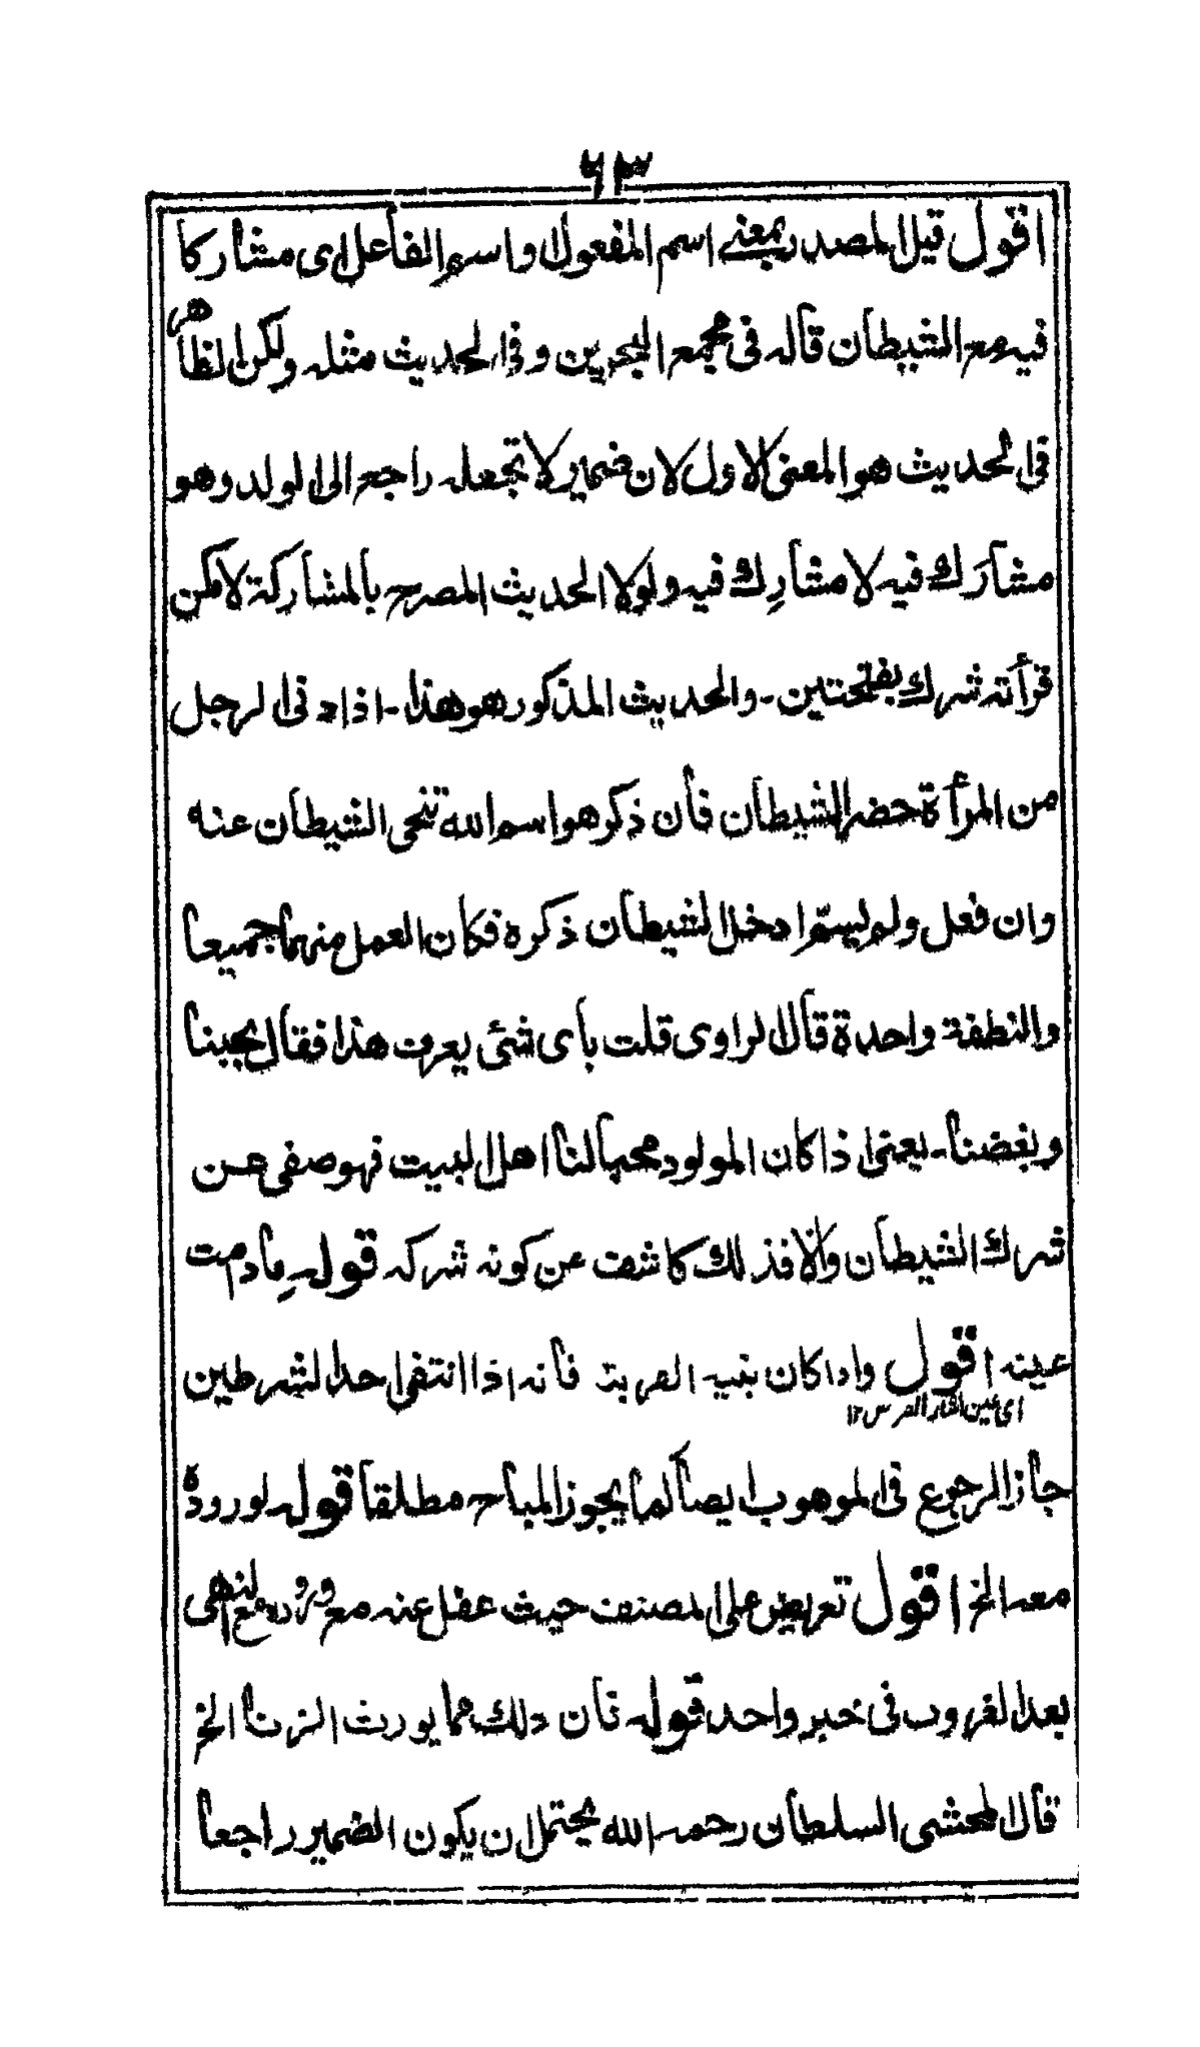 ٦٣
اقول قيل المصدر بمعنى اسم المفعول او اسم الفاعل اى مشاركا
فيه مع الشيطان قاله فى مجمع البحرين وفى الحديث مثله ولكن الظاهر
فى الحديث هو المعنى الاول لان ضمير لا تجعله راجع الى الولد وهو
مشارَك فيه لا مشارِك فيه ولولا الحديث المصرح بالمشاركة لامكن
قرأته شرك بفتحتين۔ والحديث المذكور هو هذا۔ اذا دنى الرجل
من المرأة حضر الشيطان فان ذكر هو اسم الله تنحى الشيطان عنه
وان فعل ولم يسمّ ادخل الشيطان ذكره فكان العمل منهما جميعا
والنطفة واحدة قال الراوى قلت باى شئى يعرف هذا فقال بحبنا
وبغضنا۔ يعنى اذا كان المولود محبا لنا اهل البيت فهو صفى عن
شرك الشيطان والا فذلك كاشف عن كونه شركه قوله مادامت
عينه اقول واذا كان بنيه القربة فانه اذا انتفى احد الشرطين
اى عين الفرس ١٢
جاز الرجوع فى الموهوب ايضا كما يجوز المباح مطلقا قوله لوروده
معه الخ اقول تعريض على المصنف حيث غفل عنه مع وروده مع النهى
بعد الغروب فى خبر واحد قوله فان ذلك مما يورث الزنا الخ
قال المحشى السلطان رحمه الله يحتمل ان يكون الضمير راجعا